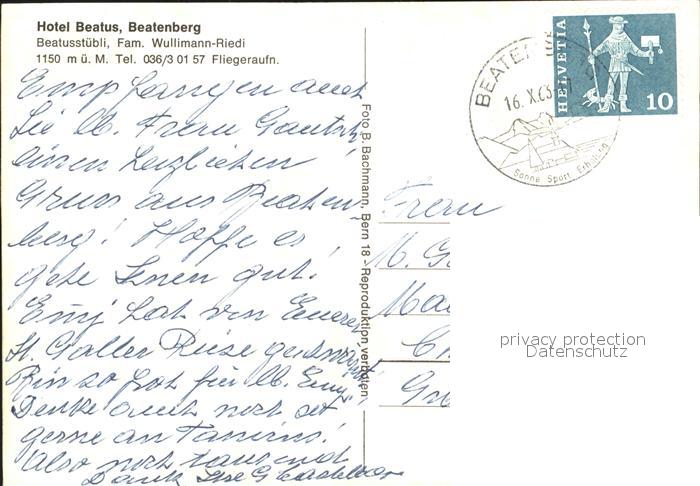 Hotel Beatus, Beatenberg
Beatusstübli, Fam. Wullimann-Riedi
1150 m ü. M. Tel. 036/3 01 57 Fliegeraufn.
Empfangen auch
Sie lb. Frau
einen herzlichen
Gruss aus Beaten-
berg! Hoffe es
gehe Ihnen gut!
hat von
St. Galler Reise
Bin so froh für lb.
Denke auch noch oft
gerne an
Also noch tausend
Dank Ihre
Foto B. Bachmann, Bern 18 - Reproduktion verboten
HELVETIA
10
BEATEN
16.X.63
Sonne Sport Erholung
Frau
M. G
Ma
privacy protection
Datenschutz